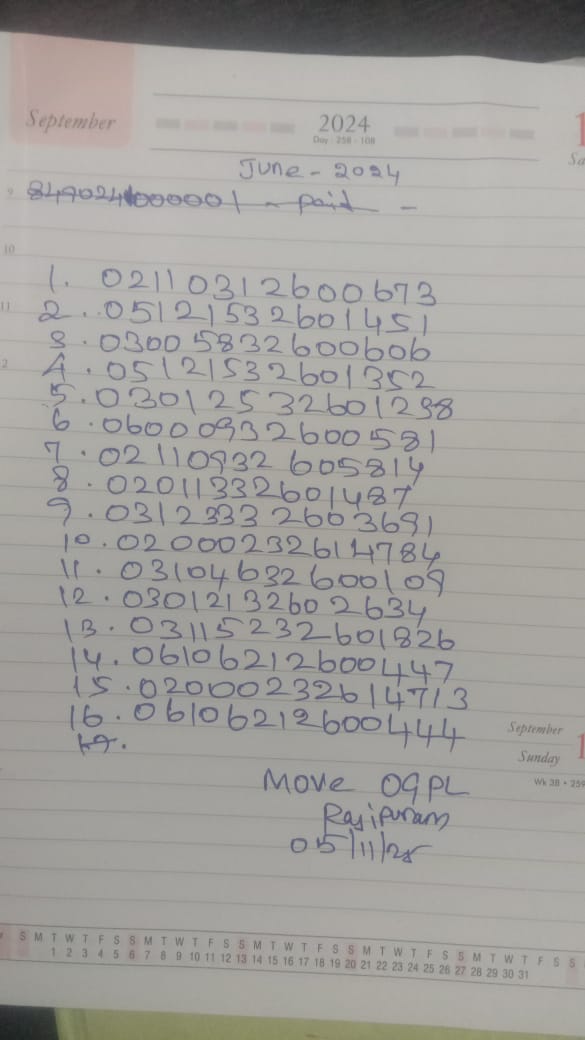 September
2024
Day : 258 - 108
Sa
June - 2024
9
8490241000001 - paid -
10
1. 02110312600673
11
2. 05121532601451
3. 03005832600606
2
4. 05121532601352
5. 03012532601298
6. 06000932600581
7. 02110932605814
8. 02011332601487
9. 03123332603691
10. 02000232614784
11. 03104632600109
12. 03012132602634
13. 03115232601826
14. 06106212600447
15. 02000232614713
16. 06106212600444
17.
September
Sunday
Wk 38 • 259
Move OGPL
Rasipuram
05/11/25
S M T W T F S S M T W T F S S M T W T F S S M T W T F S S M T W T F S S
1 2 3 4 5 6 7 8 9 10 11 12 13 14 15 16 17 18 19 20 21 22 23 24 25 26 27 28 29 30 31